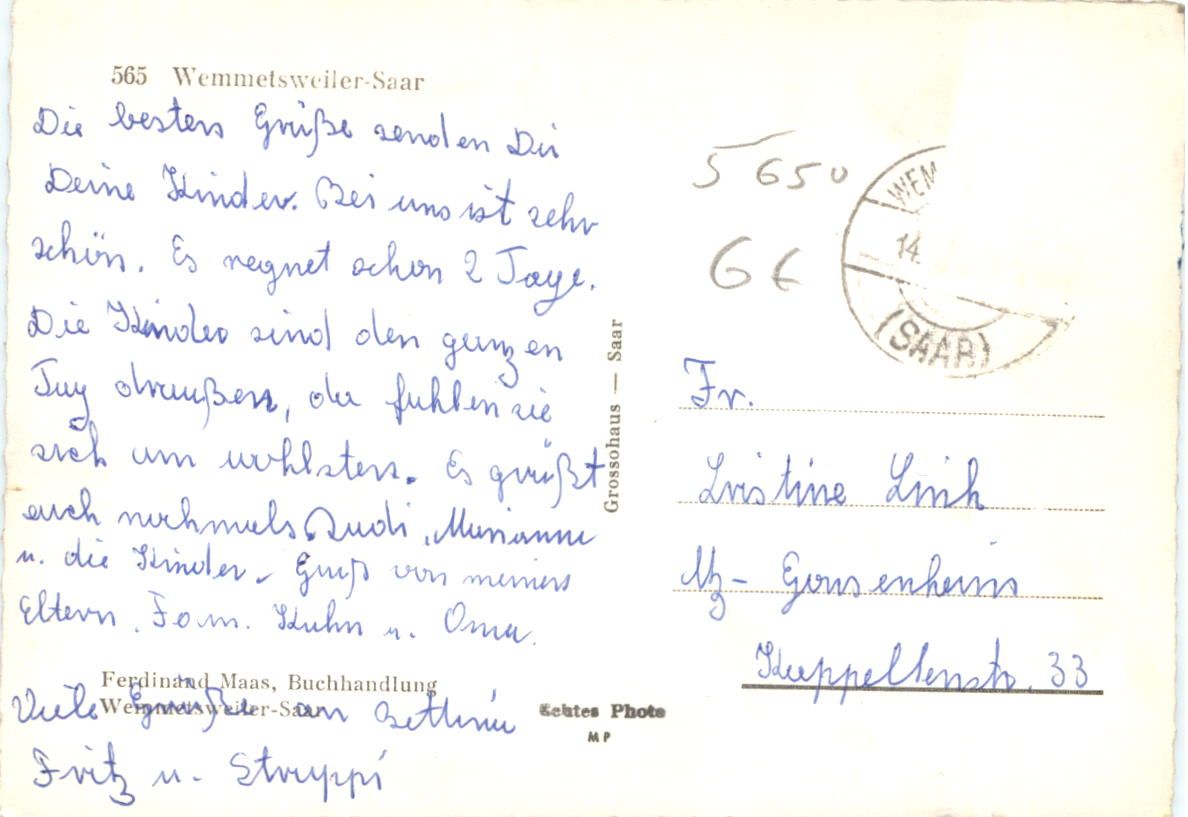 565 Wemmetsweiler-Saar
Die besten Grüße senden Dir
Deine Kinder. Bei uns ist sehr
schön. Es regnet schon 2 Tage.
Die Kinder sind den ganzen
Tag draußen, da fuhlen sie
sich am wohlsten. Es grüßt
euch nochmals Rudi, Marianne
u. die Kinder. Gruß von meinen
Eltern. Fam. Kuhn u. Oma.
Ferdinand Maas, Buchhandlung
Wemmetsweiler-Saar
Viele Grüße an Bettina
Fritz u. Struppi
Echtes Photo
MP
Grossohaus — Saar
5650
6 €
WEM
14.
(SAAR)
Fr.
Link
Mz- Gonsenheim
33